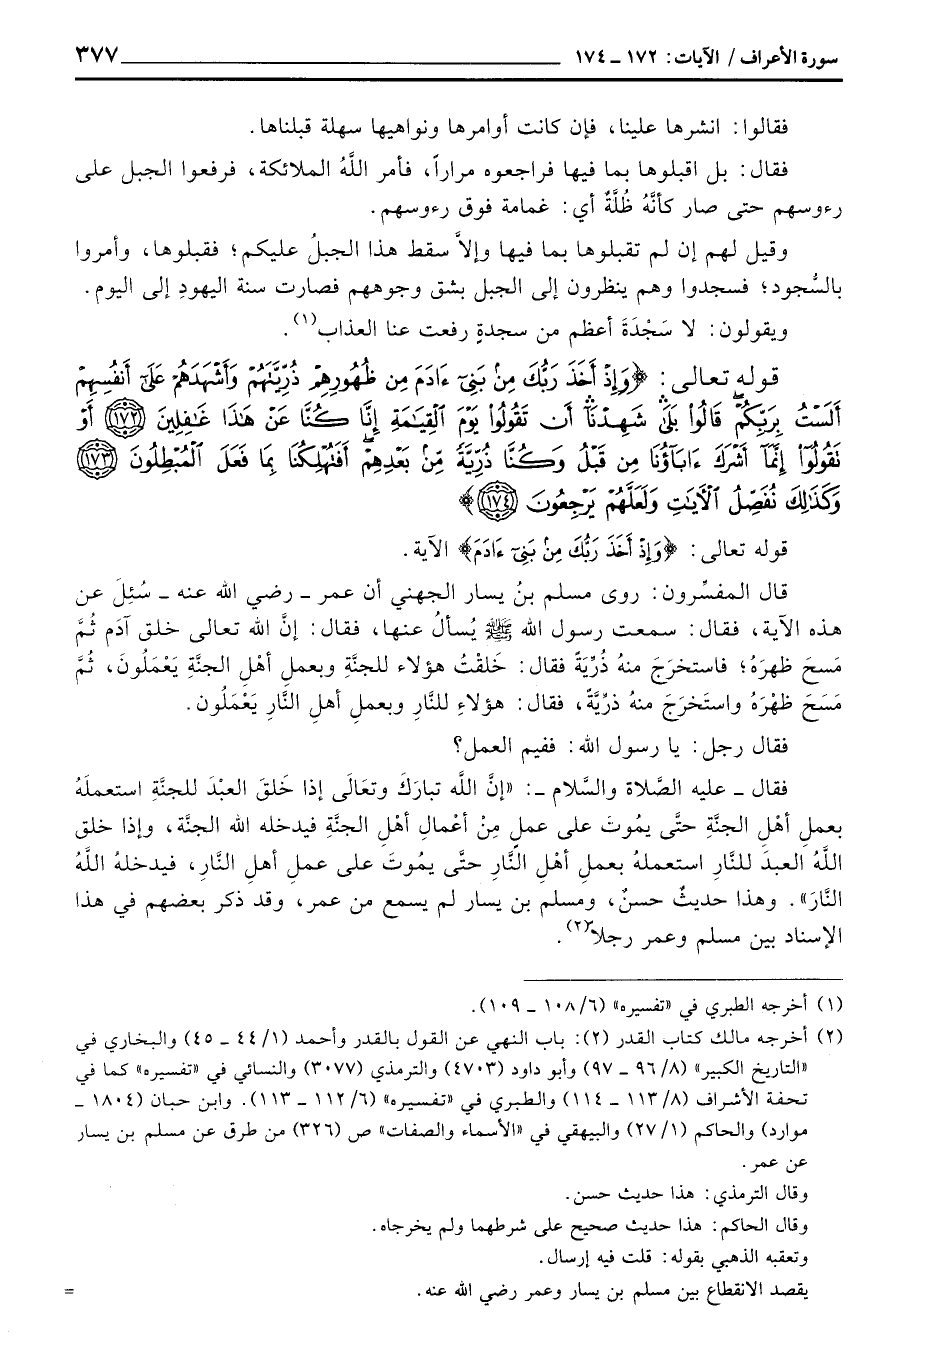 سورة الأعراف / الآيات: ١٧٢ ــ ١٧٤ ٣٧٧
فقالوا: انشرها علينا، فإن كانت أوامرها ونواهيها سهلة قبلناها.
فقال: بل اقبلوها بما فيها فراجعوه مراراً، فأمر اللَّهُ الملائكة، فرفعوا الجبل على
رءوسهم حتى صار كأنَّهُ ظُلَّةٌ أي: غمامة فوق رءوسهم.
وقيل لهم إن لم تقبلوها بما فيها وإلاَّ سقط هذا الجبلُ عليكم؛ فقبلوها، وأمروا
بالسُّجود؛ فسجدوا وهم ينظرون إلى الجبل بشق وجوههم فصارت سنة اليهودِ إلى اليوم.
ويقولون: لا سَجْدَةَ أعظم من سجدةٍ رفعت عنا العذاب(١).
قوله تعالى: ﴿وَإِذْ أَخَذَ رَبُّكَ مِنۢ بَنِىٓ ءَادَمَ مِن ظُهُورِهِمْ ذُرِّيَّتَهُمْ وَأَشْهَدَهُمْ عَلَىٰٓ أَنفُسِهِمْ
أَلَسْتُ بِرَبِّكُمْ ۖ قَالُوا۟ بَلَىٰ ۛ شَهِدْنَآ ۛ أَن تَقُولُوا۟ يَوْمَ ٱلْقِيَـٰمَةِ إِنَّا كُنَّا عَنْ هَـٰذَا غَـٰفِلِينَ ﴿١٧٢﴾ أَوْ
تَقُولُوٓا۟ إِنَّمَآ أَشْرَكَ ءَابَآؤُنَا مِن قَبْلُ وَكُنَّا ذُرِّيَّةً مِّنۢ بَعْدِهِمْ ۖ أَفَتُهْلِكُنَا بِمَا فَعَلَ ٱلْمُبْطِلُونَ ﴿١٧٣﴾
وَكَذَٰلِكَ نُفَصِّلُ ٱلْـَٔايَـٰتِ وَلَعَلَّهُمْ يَرْجِعُونَ ﴿١٧٤﴾﴾
قوله تعالى: ﴿وَإِذْ أَخَذَ رَبُّكَ مِنۢ بَنِىٓ ءَادَمَ﴾ الآية.
قال المفسِّرون: روى مسلم بنُ يسار الجهني أن عمر ـ رضي الله عنه ـ سُئِلَ عن
هذه الآية، فقال: سمعت رسول الله ﷺ يُسألُ عنها، فقال: إنَّ الله تعالى خلق آدَم ثُمَّ
مَسحَ ظهرَهُ؛ فاستخرَجَ منهُ ذُرِّيَةً فقال: خَلقْتُ هؤلاء للجنَّةِ وبعملِ أهْلِ الجنَّةِ يَعْمَلُونَ، ثُمَّ
مَسَحَ ظهْرَهُ واستَخرَجَ منه ذرِّيَّةً، فقال: هؤلاءِ للنَّارِ وبعملِ أهلِ النَّارِ يَعْمَلُون.
فقال رجل: يا رسول الله: ففيم العمل؟
فقال ـ عليه الصَّلاة والسَّلام ـ: «إنَّ اللَّه تبارَكَ وتعَالَى إذا خَلقَ العبْدَ للجنَّةِ استعملَهُ
بعملِ أهْلِ الجنَّةِ حتَّى يمُوتَ على عملٍ مِنْ أعْمالِ أهْلِ الجنَّةِ فيدخله الله الجنَّة، وإذا خلق
اللَّهُ العبدَ للنَّارِ استعملهُ بعملِ أهْلِ النَّارِ حتَّى يمُوتَ على عملِ أهلِ النَّارِ، فيدخلهُ اللَّهُ
النَّارَ». وهذا حديثٌ حسنٌ، ومسلم بن يسار لم يسمع من عمر، وقد ذكر بعضهم في هذا
الإسناد بين مسلم وعمر رجلاً(٢).
(١) أخرجه الطبري في «تفسيره» (٦/ ١٠٨ ـ ١٠٩).
(٢) أخرجه مالك كتاب القدر (٢): باب النهي عن القول بالقدر وأحمد (١/ ٤٤ ـ ٤٥) والبخاري في
«التاريخ الكبير» (٨/ ٩٦ ـ ٩٧) وأبو داود (٤٧٠٣) والترمذي (٣٠٧٧) والنسائي في «تفسيره» كما في
تحفة الأشراف (٨/ ١١٣ ـ ١١٤) والطبري في «تفسيره» (٦/ ١١٢ ـ ١١٣). وابن حبان (١٨٠٤ ـ
موارد) والحاكم (١/ ٢٧) والبيهقي في «الأسماء والصفات» ص (٣٢٦) من طرق عن مسلم بن يسار
عن عمر.
وقال الترمذي: هذا حديث حسن.
وقال الحاكم: هذا حديث صحيح على شرطهما ولم يخرجاه.
وتعقبه الذهبي بقوله: قلت فيه إرسال.
يقصد الانقطاع بين مسلم بن يسار وعمر رضي الله عنه. =